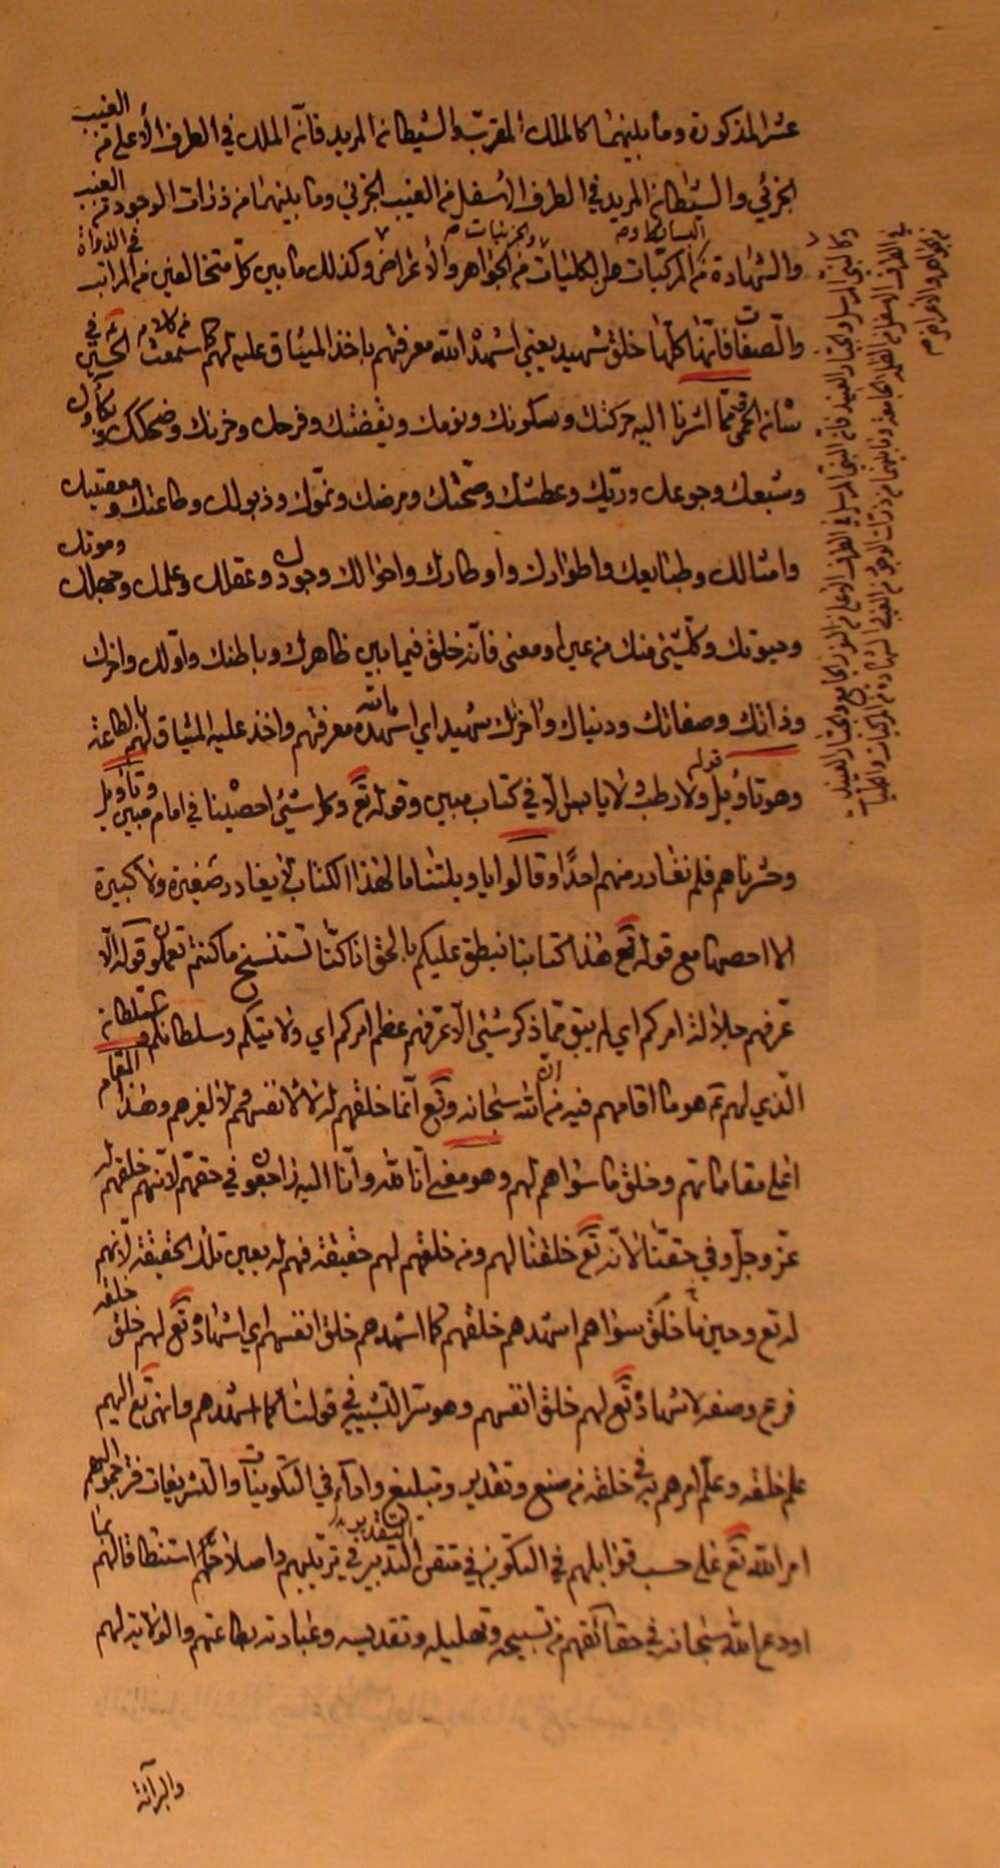 عشر المذكورة وما بينهما كالملك المقرب والشيطان المريد فان الملك في الطرف الأعلى من الغيب
الجزئي والشيطان المريد في الطرف الأسفل من الغيب الجزئي وما بينهما من ذرات الوجود من الغيب
والشهادة من المركبات والبسائط ومن الكليات والجزئيات من الجواهر والأعراض وكذلك ما بين كل متخالفين من المراتب في الذوات
والصفات فانها كلها خلق شهيد يعني اشهده الله معرفتهم باخذ الميثاق عليه لهم كما سمعت من كلام الحسين ع في
شان الحمى فمما اشرنا اليه حركتك وسكونك ونومك ويقضتك وفرحك وحزنك وضحكك وبكاؤك
وشبعك وجوعك وريك وعطشك وصحتك ومرضك ونموك وذبولك وطاعتك ومعصيتك
وامثالك وطبايعك واطوارك واوطارك واحوالك ووجودك وعقلك وعلمك وجهلك وموتك
وحيوتك وكل شيء منك من عين ومعنى فانه خلق فيما بين ظاهرك وباطنك واولك واخرك
وذاتك وصفاتك ودنياك واخرتك شهيد اي اشهده الله معرفتهم واخذ عليه الميثاق لهم بالطاعة
وهو تاويل قوله ولا رطب ولا يابس الا في كتاب مبين وقوله تع وكل شيء احصيناه في امام مبين وتاويل
وحشرناهم فلم نغادر منهم احدا وقالوا يا ويلتنا ما لهذا الكتاب لا يغادر صغيرة ولا كبيرة
الا احصيها مع قوله تع هذا كتابنا ينطق عليكم بالحق انا كنا نستنسخ ما كنتم تعملون قوله الا
عرفهم جلالة امركم اي لم يبق مما ذكر شيء الا عرفهم عظم امركم اي ولايتكم وسلطانكم وسلطانه
الذي لهم ثم هو ما اقامهم فيه من انه الله سبحانه وتع انما خلقهم له لا لانفسهم ولا لغيرهم وهذا المقام
اعلى مقاماتهم وخلق ما سواهم لهم وهو معنى انا لله وانا اليه راجعون في حقهم لانهم خلقهم له
عز وجل وفي حقنا لانه تع خلقنا لهم ومن خلقهم لهم حقيقة فهم له بعين تلك الحقيقة لانهم
له تع وحين ما خلق سواهم اشهدهم خلقهم كما اشهدهم خلق انفسهم اي اشهاده تع لهم خلق خلقه
فرع وصفة لاشهاده تع لهم خلق انفسهم وهو سر التشبيه في قولنا كما اشهدهم وانهى تع اليهم
علم خلقه وعلم امرهم به في خلقه من صنع وتقدير وتبليغ واداء في التكوينات والتشريعات فترجموا لهم
امر الله تع على حسب قوابلهم في التكوين في متقن التدبير التقدير في تربيتهم واصلاحهم استنطاقا لهم بما
اودع الله سبحانه في حقائقهم من تسبيحه وتهليله وتقديسه وعبادته بطاعتهم والولاية لهم
والبرائة